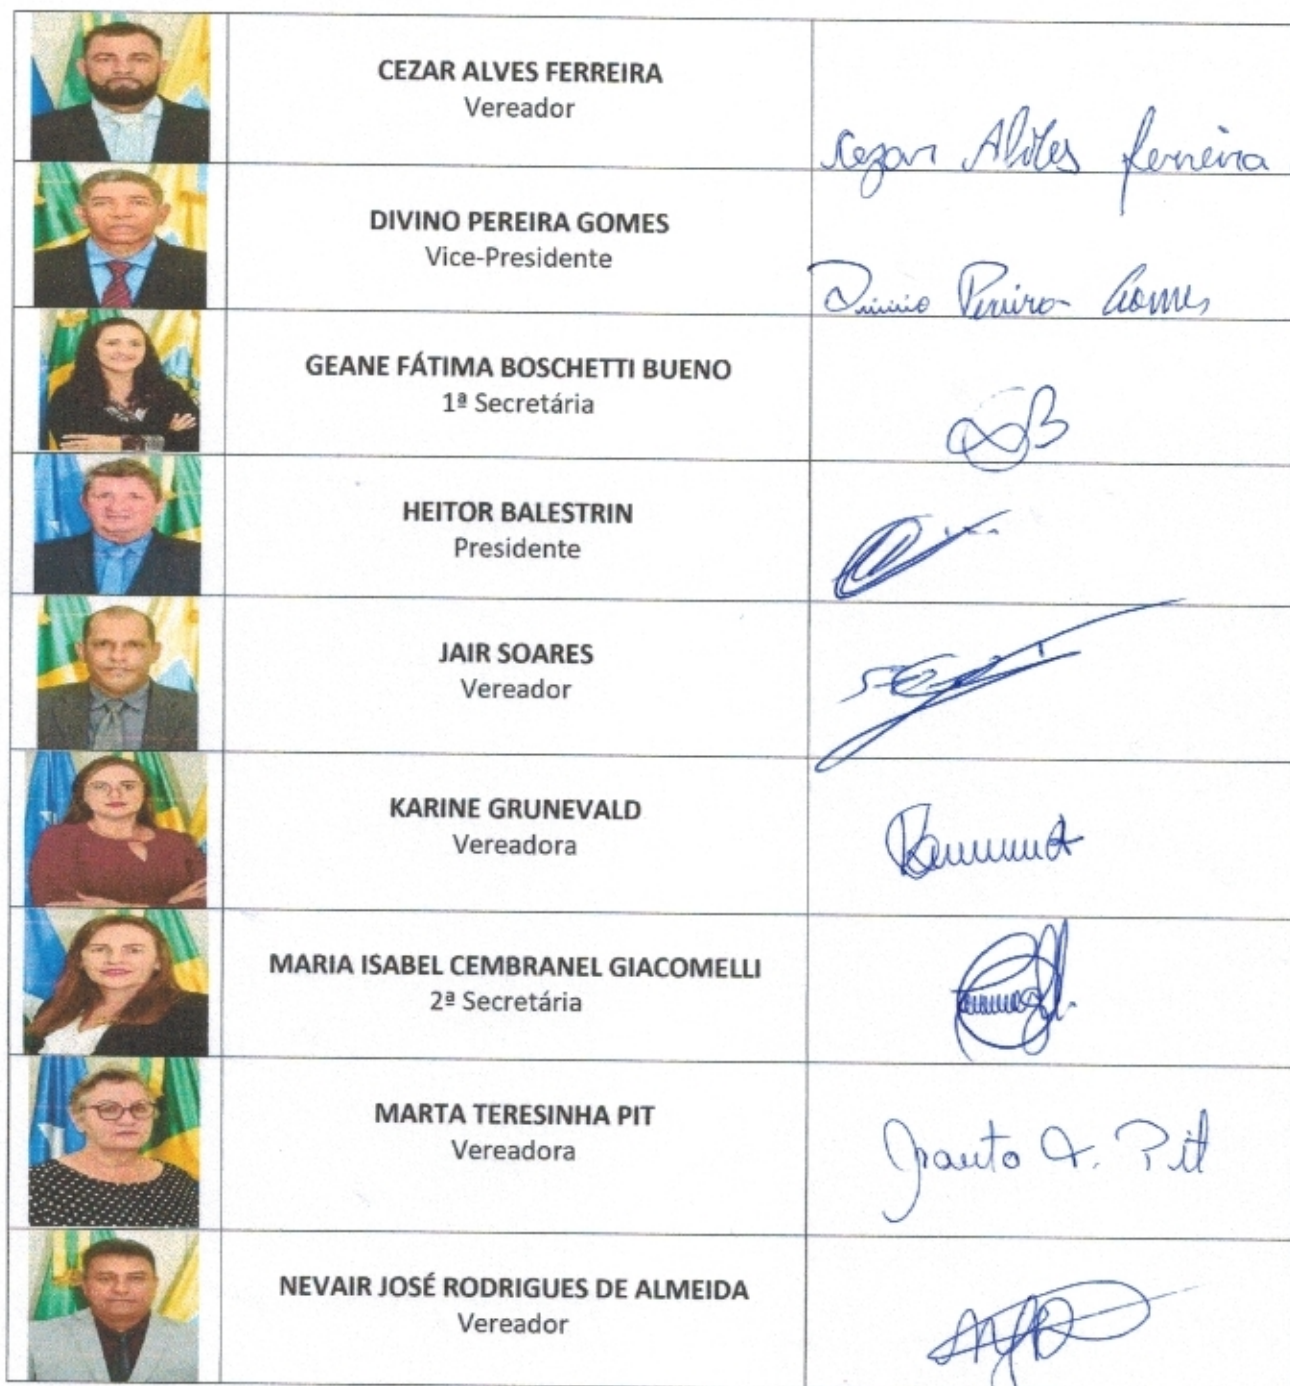 CEZAR ALVES FERREIRA
Vereador
Cezar Alves Ferreira
DIVINO PEREIRA GOMES
Vice-Presidente
Divino Pereira Gomes
GEANE FÁTIMA BOSCHETTI BUENO
1ª Secretária
HEITOR BALESTRIN
Presidente
JAIR SOARES
Vereador
KARINE GRUNEVALD
Vereadora
MARIA ISABEL CEMBRANEL GIACOMELLI
2ª Secretária
MARTA TERESINHA PIT
Vereadora
Marta T. Pit
NEVAIR JOSÉ RODRIGUES DE ALMEIDA
Vereador